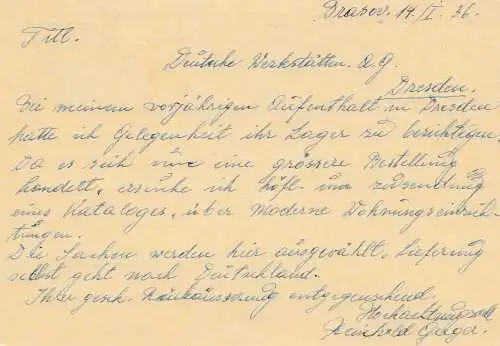 Brasov. 14/I. 36.
Titl.
Deutsche Werkstätten. A.G.
Dresden.
Bei meinem vorjährigen Aufenthalt in Dresden
hatte ich Gelegenheit ihr Lager zu besichtigen.
Da es sich um eine grössere Bestellung
handelt, ersuche ich höfl. um zusendung
eines Kataloges, über Moderne Wohnungseinrich-
tungen.
Die Sachen werden hier ausgewählt, Lieferung
selbst geht nach Deutschland.
Ihrer gesch. Rückäusserung entgegensehend.
Hochachtungsvoll
Reinhold